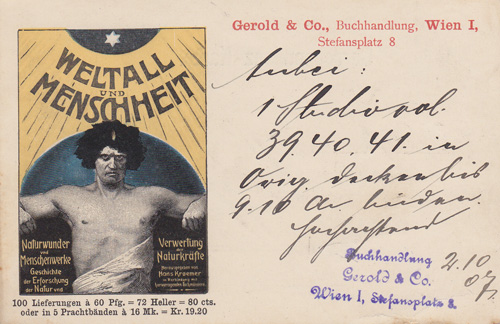 WELTALL
UND
MENSCHHEIT
Naturwunder
und
Menschenwerke
Geschichte
der Erforschung
der Natur und
Verwertung
der
Naturkräfte
Herausgegeben von
Hans Kraemer
in Verbindung mit
hervorragenden Fachmännern
100 Lieferungen à 60 Pfg. = 72 Heller = 80 cts.
oder in 5 Prachtbänden à 16 Mk. = Kr. 19.20
Gerold & Co., Buchhandlung, Wien I,
Stefansplatz 8
Anbei:
1
39. 40. 41. in
Orig. decken bis
9.10 zu binden.
Buchhandlung
Gerold & Co.
Wien I, Stefansplatz 8.
2.10
07